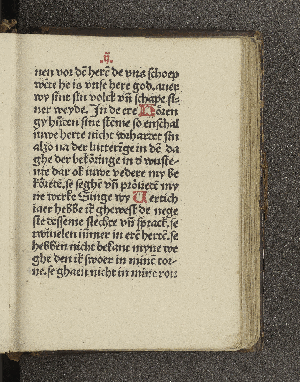 .ij.
nen vor dē herē de vns schoep
wēte he is vnse here god. auer
wy sint sin volck vñ schape si-
ner weyde. In de ere Hôren
gy hûten sine stēme so enschal
iuwe herte nicht vorharet sin
also na der bitteringe in dē da
ghe der bekôringe in d wuste-
nie dar ok iuwe vedere my be
kôuerē. se seghē vñ prôuerē my
ne werke Singe wy Uertich
iaer hebbe ik ghewesē de nege
ste desseme slechte vñ sprack. se
dwuelen iūmer in erē hertē. se
hebben nicht bekant myne we
ghe den ik swoer in minē tor-
ne. se ghaen nicht in mine rou